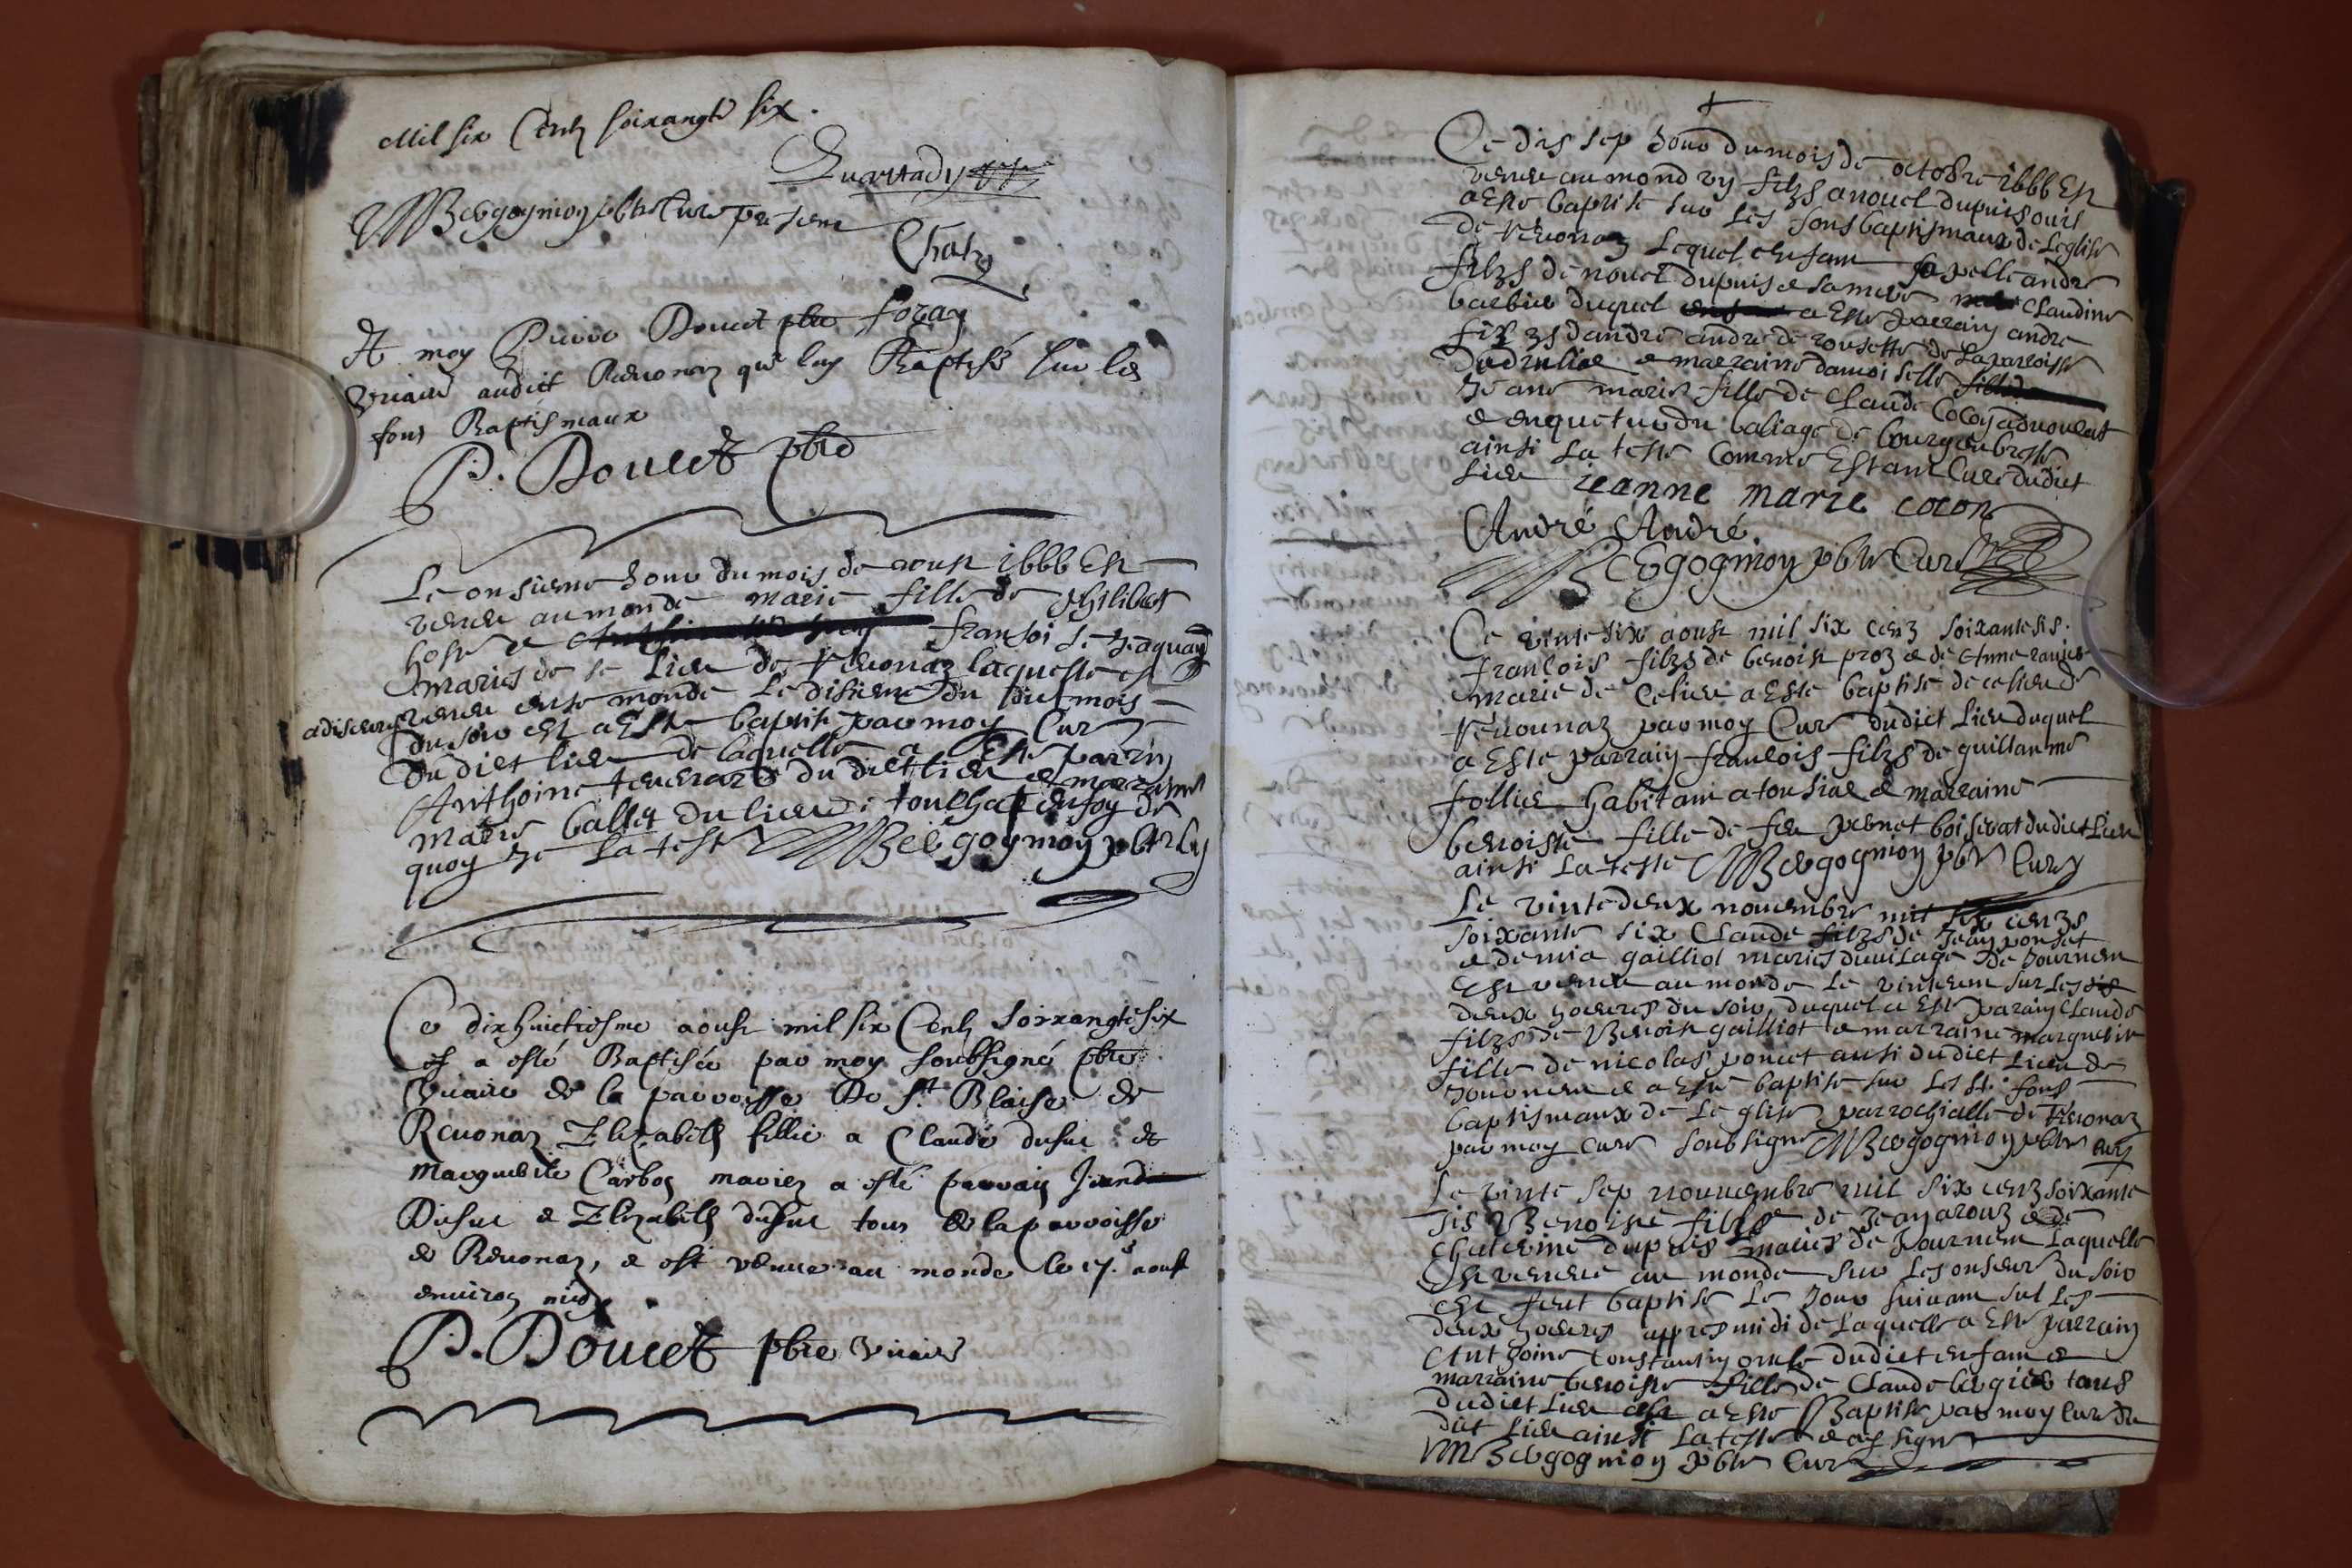 Mil six Centz soixangte six.
present
Et moy Pierre Doucet pbre
vicaire audict Revonaz qui l'ay Baptisé sur les
fons Baptismaux
P. Doucet pbre
Le onsieme Jour du mois de aoust 1666 Est
venue au monde marie fille de philibert
fransoise Jaquan
mariés de se lieu de Revonaz laquelle est
venue en se monde le disieme du dict mois
a dis eures
du soir est a Este baptise par moy Curé
du dict lieu de laquelle a Este parrin
Anthoine tenerard du dict lieu et marraine
marie ballet du lieu de toulhat en foy de
quoy Je lateste Bergogmoy pbtr
Ce dixhuictiesme aoust mil six Centz Soixangte six
et a esté Baptisée par moy soubsigné pbre
Vicaire de la parroisse De St Blaise de
Revonaz Elizabeth fillie a Claude dufue et
Marguerite Carboz mariez a esté parrain
Dufue et Elizabeth dufue tous de la parroisse
de Revonaz, et est venue au monde le 17e aoust
environ midy
P. Doucet pbre vicaire
Ce dis sep Jour du mois de octobre 1666 Est
venue au mond vn filzs a nouel dupuis ouis
a Este baptise sur les fons baptismaux de Leglise
de Revonaz Lequel enfant sapelle andre
filzs de nouel dupuis et sa mere Claudine
barbier duquel a Este parrain andre
filzs dandré andre de rousette de La paroisse
et marraine damoiselle
Jeane marie fille de Claude Cocon advoucat
et enqueteur du baliage de bourg en bresse
ainsi Lateste Comme Estant Curé dudict
Lieu jeanne marie cocon
André André.
Bergogmoy pbtr Curé
Ce vinte six aoust mil six cenz soixante sis.
francois filzs de benoist proz et de Anne
marié de Ce lieu a Este baptise de ce lieu de
Revounaz par moy Curé dudict Lieu duquel
a Este parrain francois filzs de guillaume
follier habitant a tousiae et marraine
benoiste fille de feu pernet boisserat dudict Lieu
ainsi Lateste Bergogmoy pbtr Curé
Le vinte deux novembre mil six cenzs
soixante six Claude filzs de Jean ponset
et demia gailliot mariés du vilage de Journeu
Est venue au monde Le vinteun sur Les
deux heures du soir, duquel a Este parain Claude
filzs de Benoist gailliot et marraine marguerite
fille de nicolas poncet ausi dudict Lieu de
Journeu et a Este baptise sur Les St. fons
baptismaux de Leglise parrochialle de Revonaz
par moy curé soubsigné Bergogmoy pbtr curé
Le vinte sep nouvembre mil six cenz soixante
sis Benoiste de Jean arouz et de
Chaterine dupuis mariés de Journeu Laquelle
Est venue au monde sur Les onseur du soir
est feut baptise Le Jour suivant sul Les
deux heures appres midi de Laquelle a Este parrain
Anthoine Constantin oncle dudict enfant et
marraine benoiste fille de Claude bergier tous
dudict Lieu a Este Baptise par moy curé du
dict Lieu ainsi Lateste et ay signé
Bergogmoy pbtr Curé